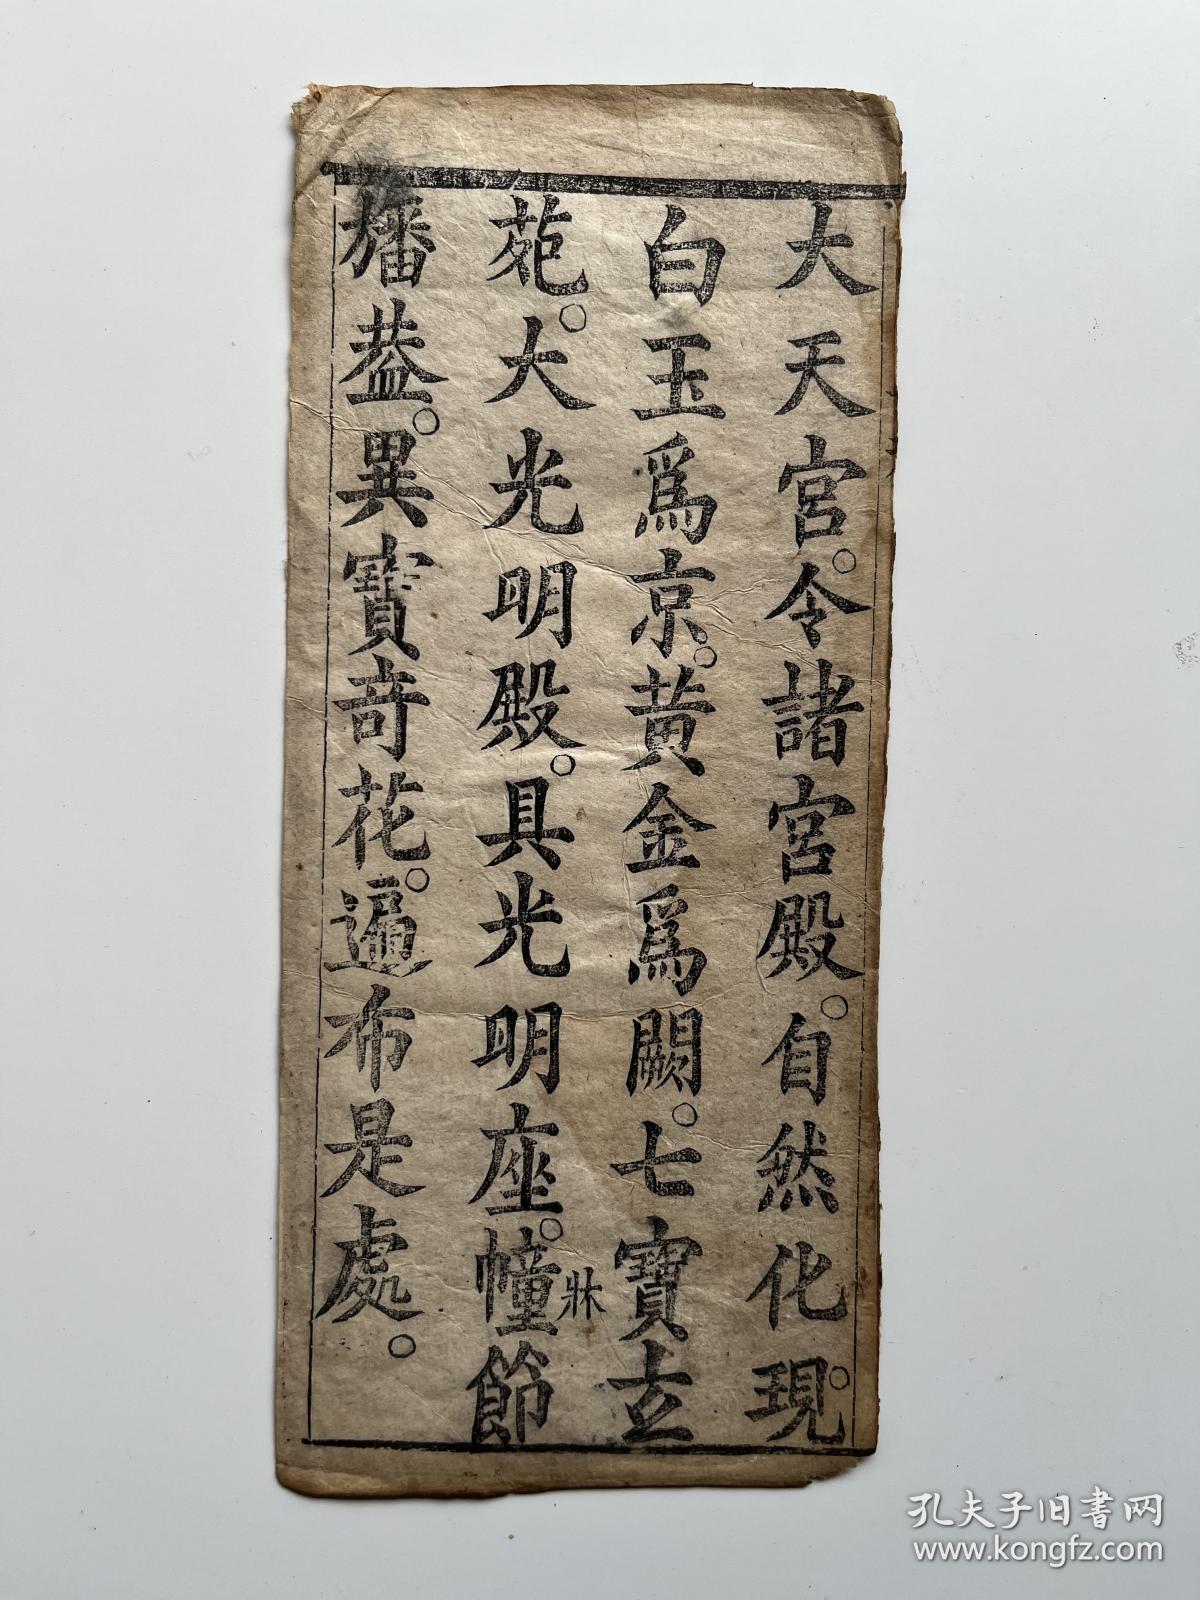 大天宮。令諸宮殿。自然化現。
白玉爲京。黄金爲闕。七寶玄
苑。大光明殿。具光明座。幢節
牀
旛葢。異寶竒花。遍布是處。
孔夫子旧书网
www.kongfz.com